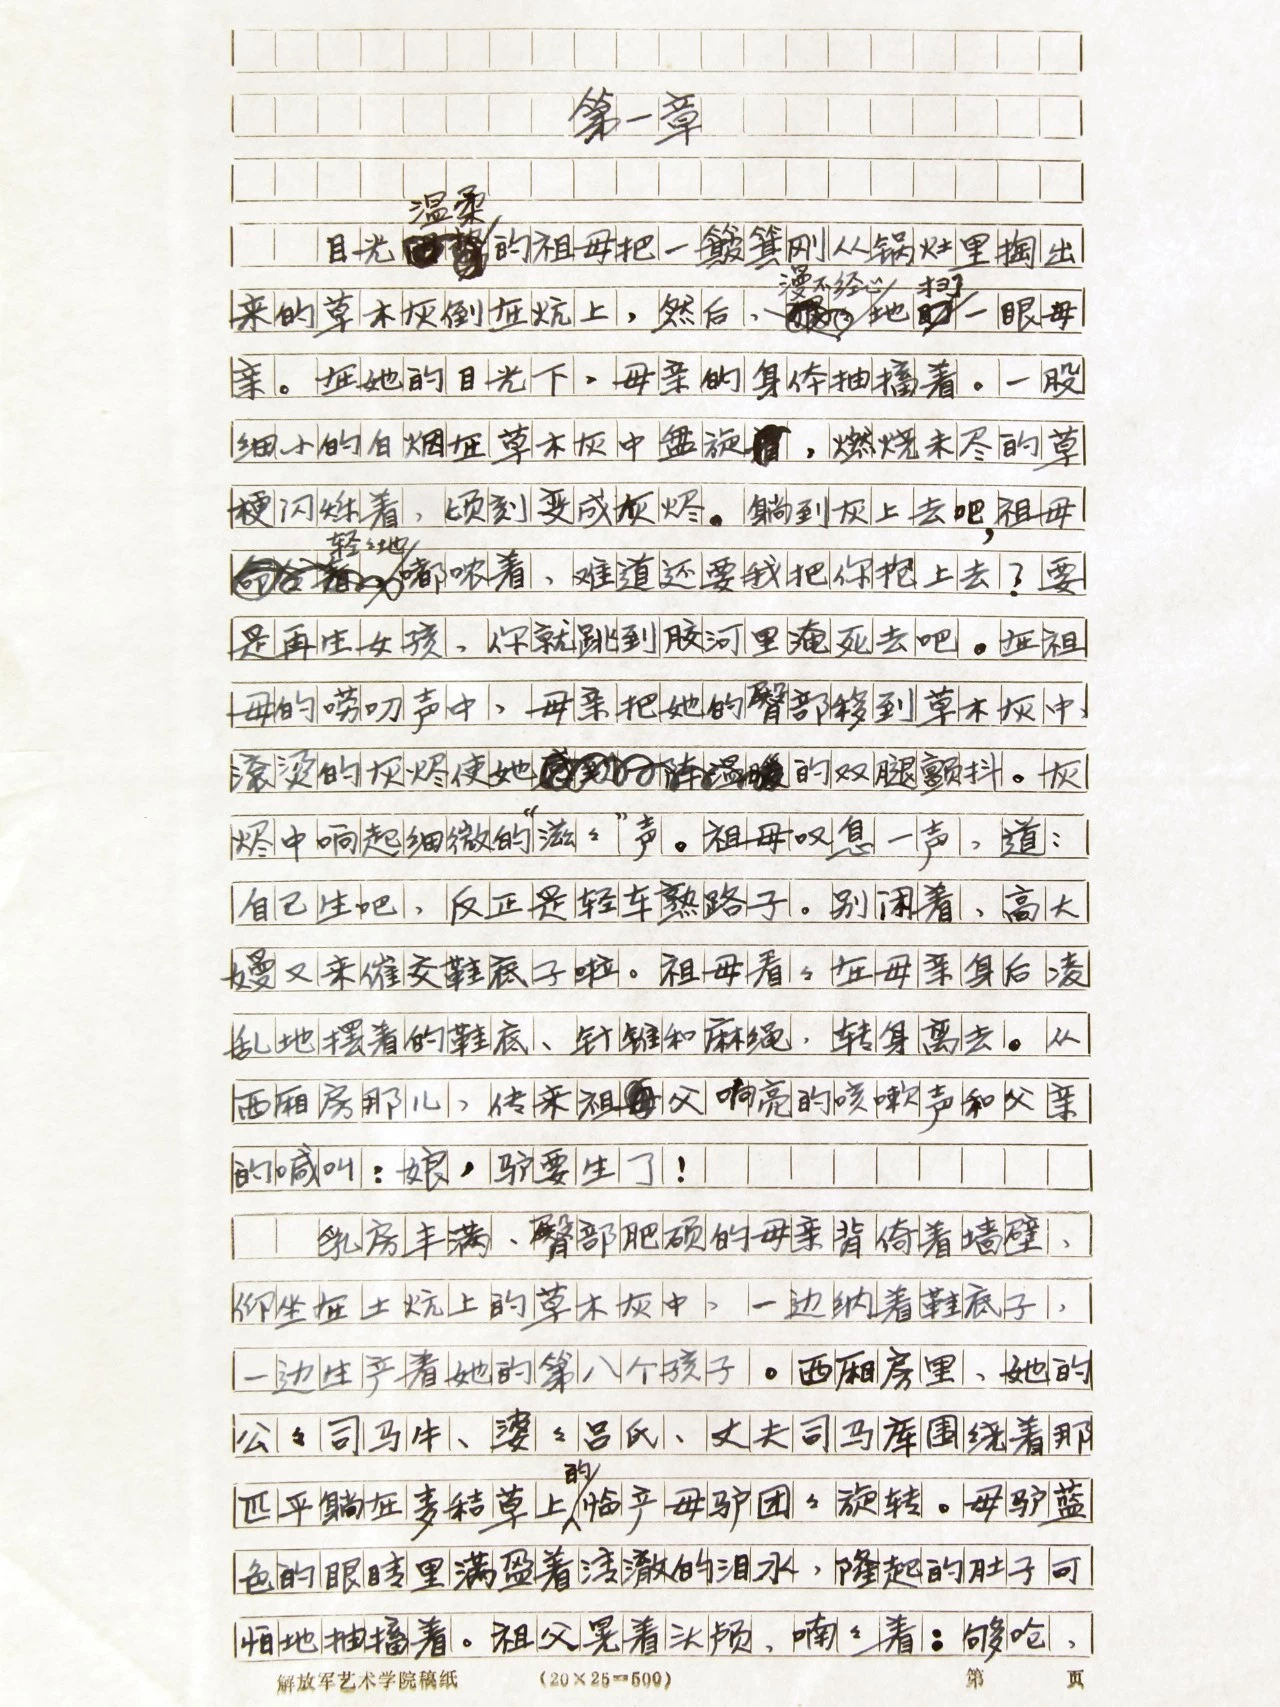 第一章
目光温柔的祖母把一簸箕刚从锅灶里掏出
来的草木灰倒在炕上，然后、漫不经心地扫一眼母
亲。在她的目光下，母亲的身体抽搐着。一股
细小的白烟在草木灰中盘旋，燃烧未尽的草
梗闪烁着，顷刻变成灰烬。躺到灰上去吧，祖母
轻々地嘟哝着，难道还要我把你抱上去？要
是再生女孩，你就跳到胶河里淹死去吧。在祖
母的唠叨声中，母亲把她的臀部移到草木灰中，
滚烫的灰烬使她的双腿颤抖。灰
烬中响起细微的“滋々”声。祖母叹息一声，道：
自己生吧，反正是轻车熟路子。别闲着，高大
嫚又来催交鞋底子啦。祖母看々在母亲身后凌
乱地摆着的鞋底、针锥和麻绳，转身离去。从
西厢房那儿，传来祖父响亮的咳嗽声和父亲
的喊叫：娘，驴要生了！
乳房丰满、臀部肥硕的母亲背倚着墙壁，
仰坐在土炕上的草木灰中，一边纳着鞋底子，
一边生产着她的第八个孩子。西厢房里，她的
公々司马牛、婆々吕氏、丈夫司马库围绕着那
匹平躺在麦秸草上的临产母驴团々旋转。母驴蓝
色的眼睛里满盈着清澈的泪水，隆起的肚子可
怕地抽搐着。祖父晃着头颅，喃々着：够呛，
解放军艺术学院稿纸 (20×25=500) 第 页